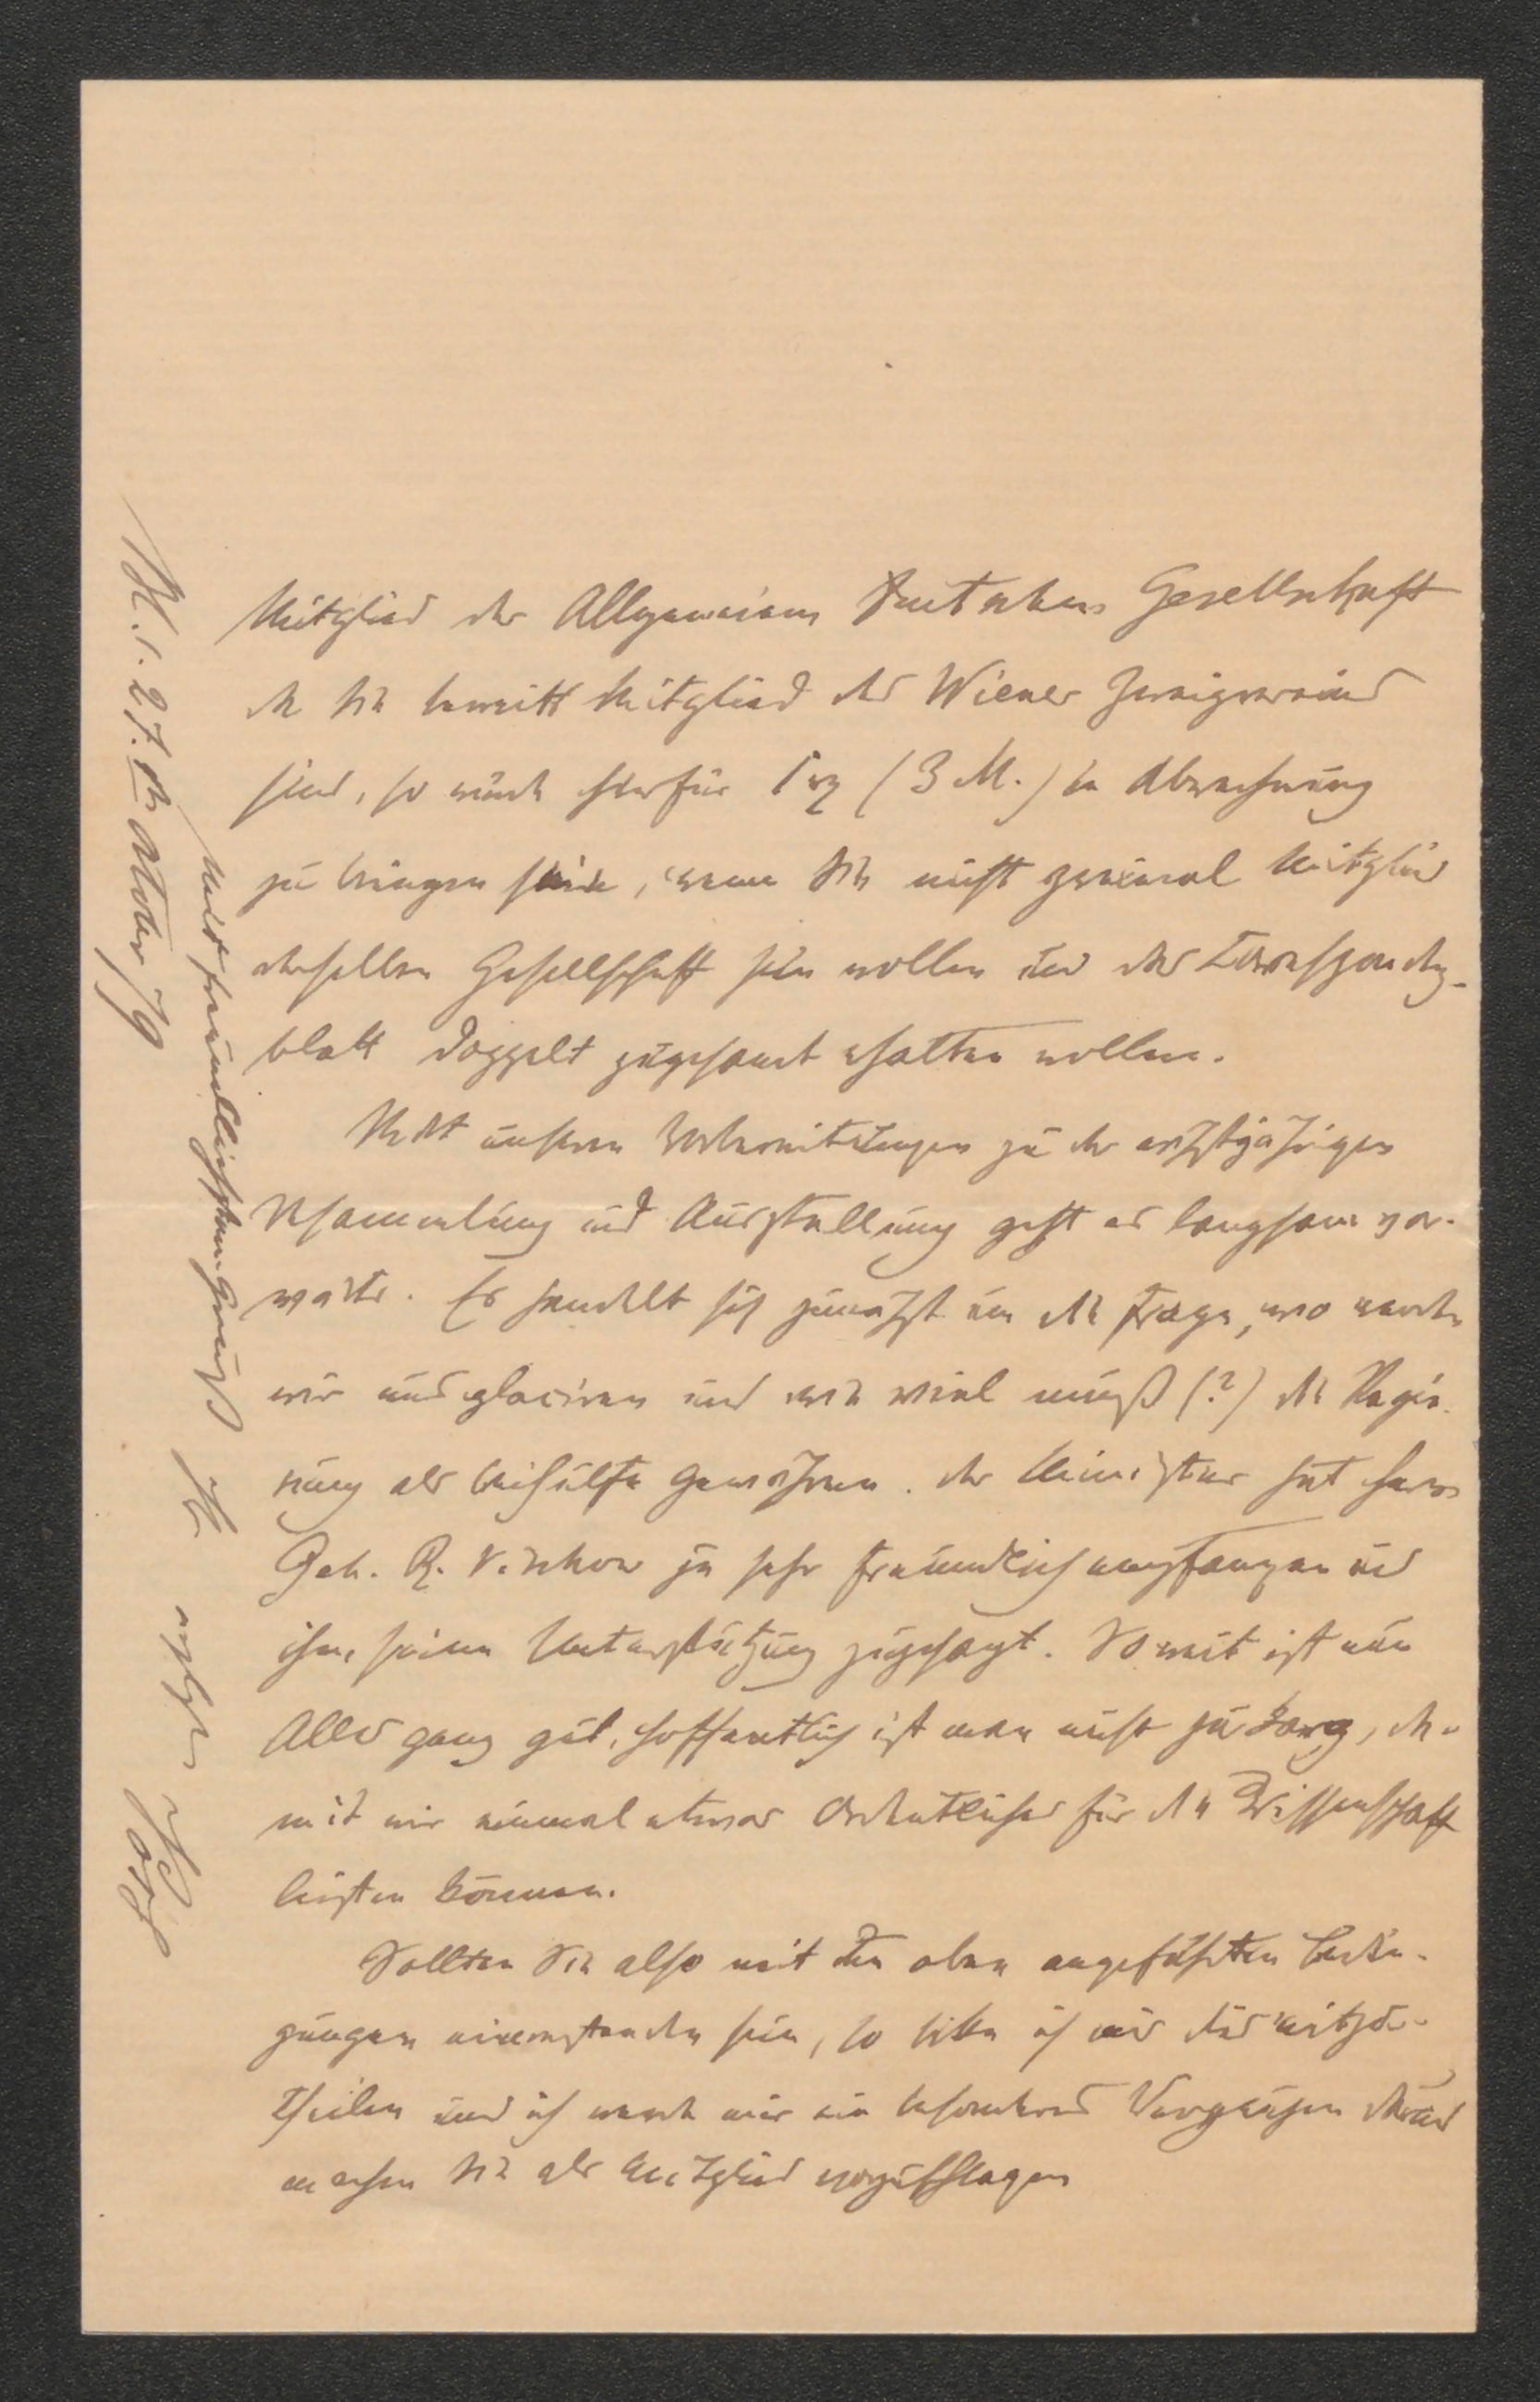 Mitglied der Allgemeinen Deutschen Gesellschaft
da Sie bereits Mitglied des Wiener Zweigvereins
sind, so würde hierfür (3 M.) in Abrechnung
zu bringen sein, wenn Sie nicht zweimal Mitglied
derselben Gesellschaft sein wollen und das Correspondenz-
blatt doppelt zugesandt erhalten wollen.
Mit unseren Vorbereitungen zu der nächstjährigen
Versammlung und Ausstellung geht es langsam vor-
wärts. Es handelt sich zunächst um die Frage, wo werden
wir uns placiren und wie viel muß (?) die Regie-
rung als Beihülfe gewähren. Der Minister hat Herrn
Geh. R. Virchow ja sehr freundlich empfangen und
ihm seine Unterstützung zugesagt. Soweit ist nun
Alles ganz gut, hoffentlich ist man nicht zu karg, da-
mit wir einmal etwas Ordentliches für die Wissenschaft
leisten können.
Sollten Sie also mit den oben angeführten Bedin-
gungen einverstanden sein, so bitte ich mir dies mitzu-
theilen und ich werde mir ein besonderes Vergnügen daraus
machen Sie als Mitglied vorzuschlagen
Mit freundlichstem Gruß Ihr ergebner Voß
B. d. 27. ten October 79